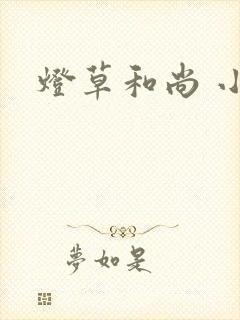 燈草和尚 小
夢如是